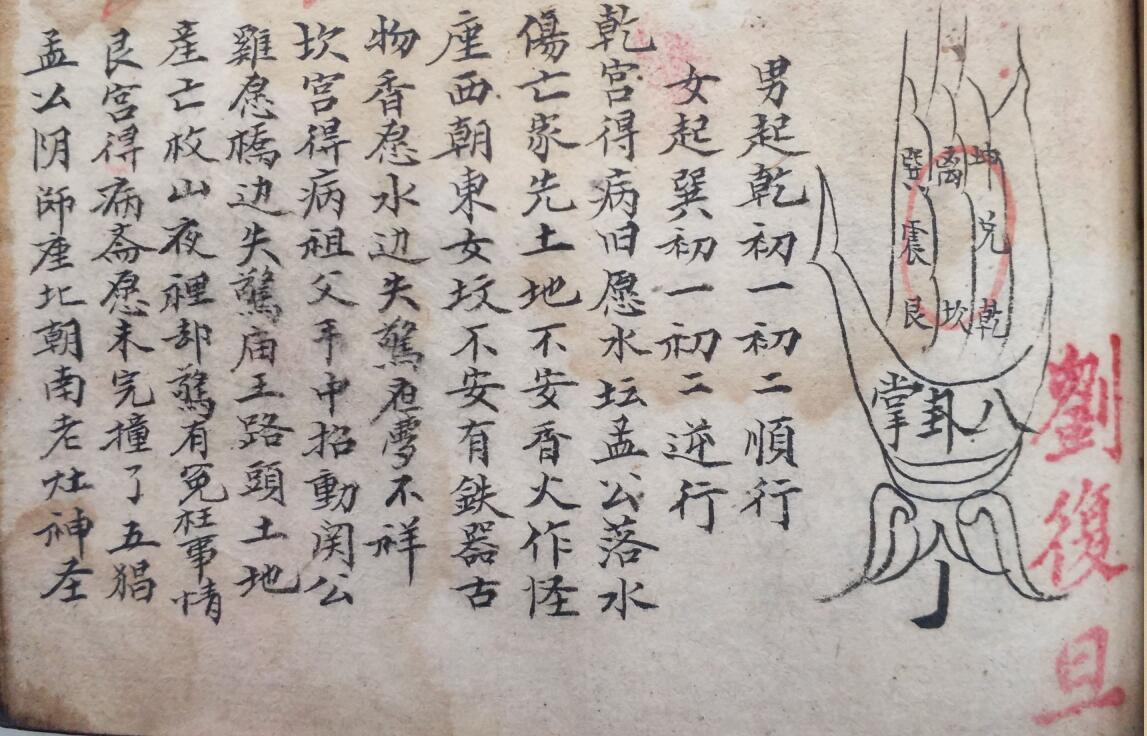 劉復旦
巽离坤
震兑
艮坎乾
八卦掌
男起乾初一初二順行
女起巽初一初二逆行
乾宮得病旧愿水坛孟公落水
傷亡家先土地不安香火作怪
座西朝東女坟不安有鉄器古
物香愿水边失驚夜夢不祥
坎宮得病祖父手中招動関公
雞愿橋边失驚庙王路頭土地
產亡枚山夜裡却驚有冤枉事情
艮宮得病斋愿未完撞了五猖
孟公阴師座北朝南老灶神圣